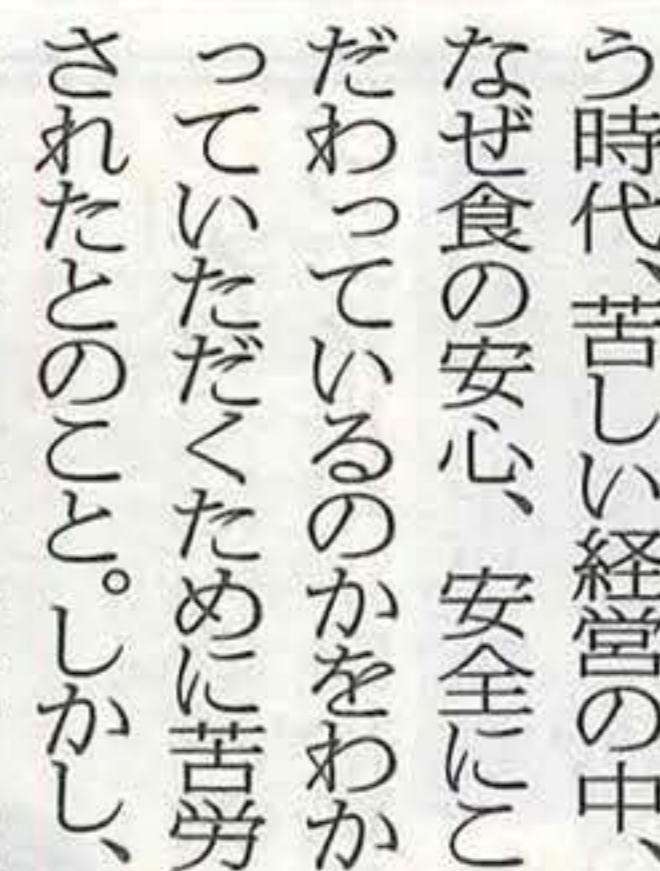 う時代、苦しい経営の中、
なぜ食の安心、安全にこ
だわっているのかをわか
っていただくために苦労
されたとのこと。しかし、